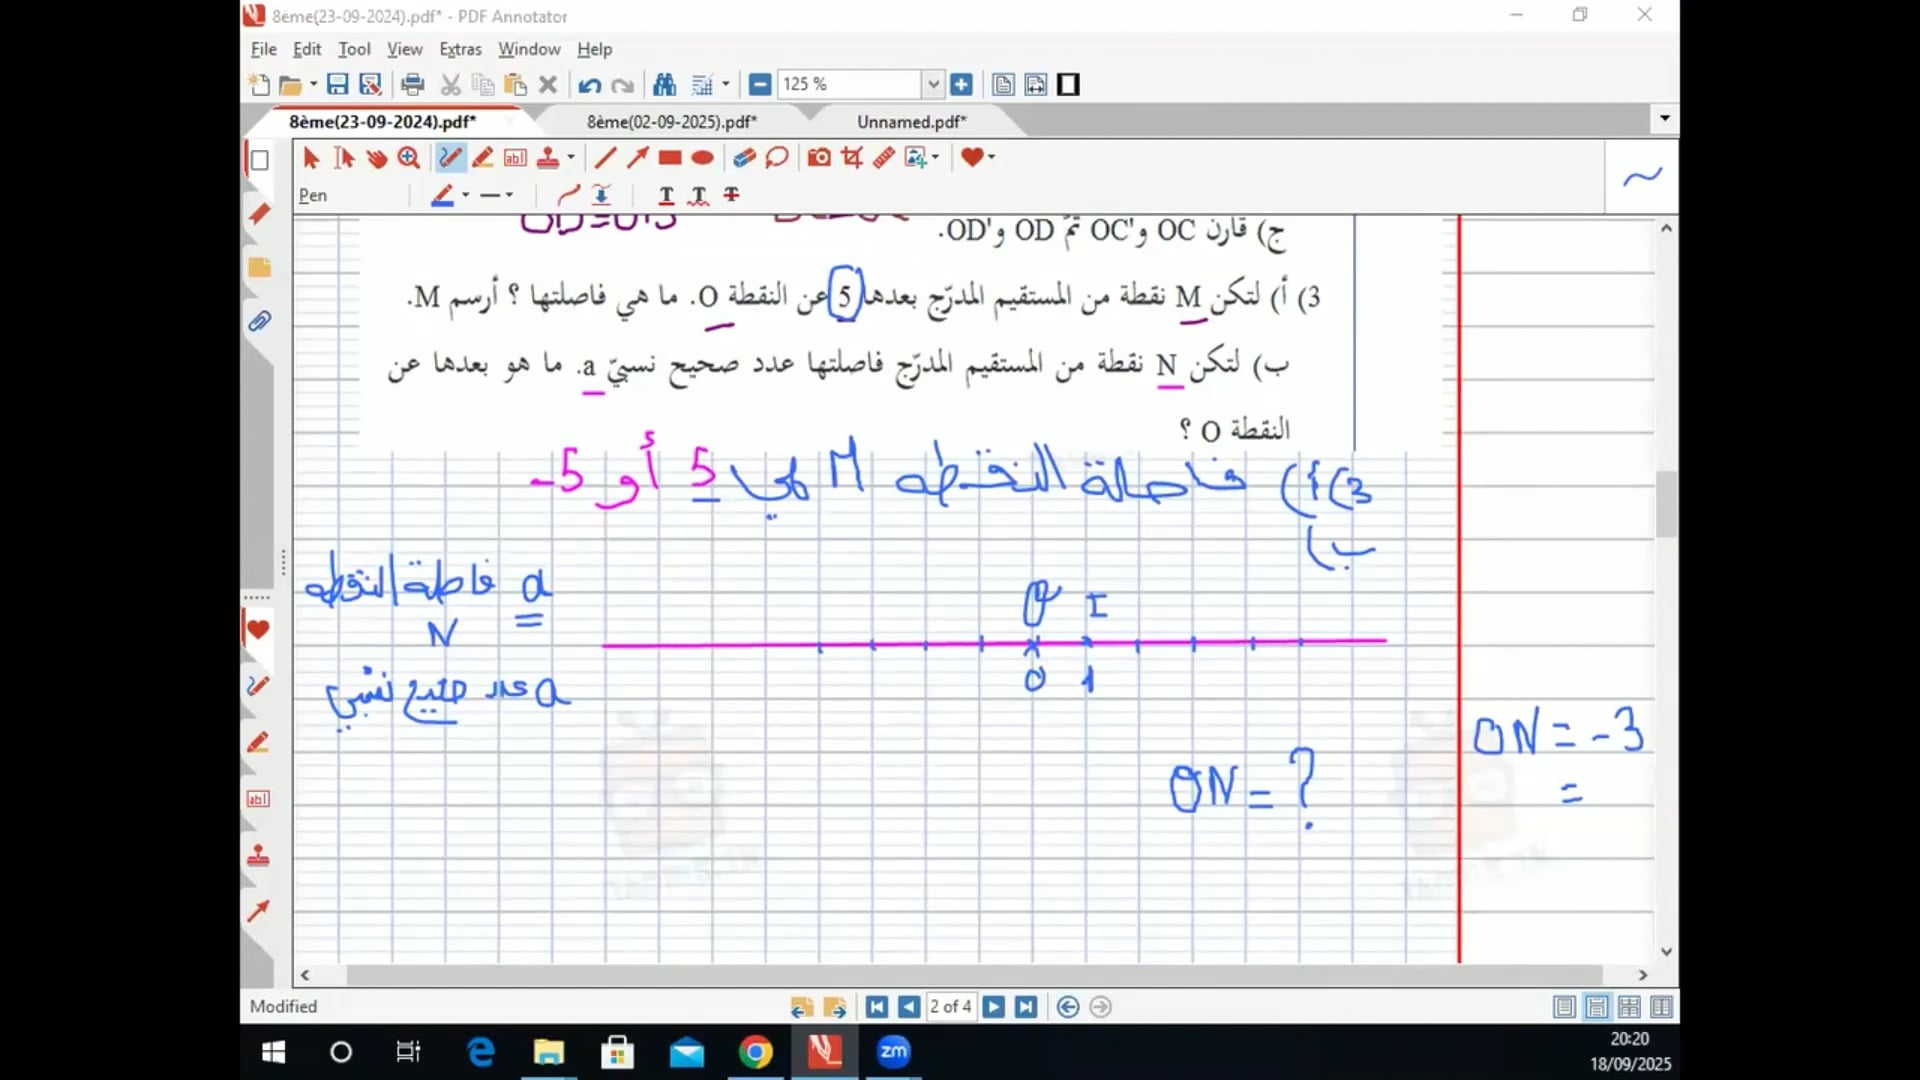 8ème(23-09-2024).pdf* - PDF Annotator
File Edit Tool View Extras Window Help
125 %
8ème(23-09-2024).pdf* 8ème(02-09-2025).pdf* Unnamed.pdf*
Pen
ج) قارن OC و'OC ثمّ OD و'OD.
3) أ) لتكن M نقطة من المستقيم المدرّج بعدها 5 عن النقطة O. ما هي فاصلتها ؟ أرسم M.
ب) لتكن N نقطة من المستقيم المدرّج فاصلتها عدد صحيح نسبيّ a. ما هو بعدها عن
النقطة O ؟
3) أ) فاصلة النقطة M هي 5 أو 5-
ب)
a فاصلة النقطة
N
a عدد صحيح نسبي
I
0 1
ON = ?
ON = -3
=
Modified
2 of 4
20:20
18/09/2025